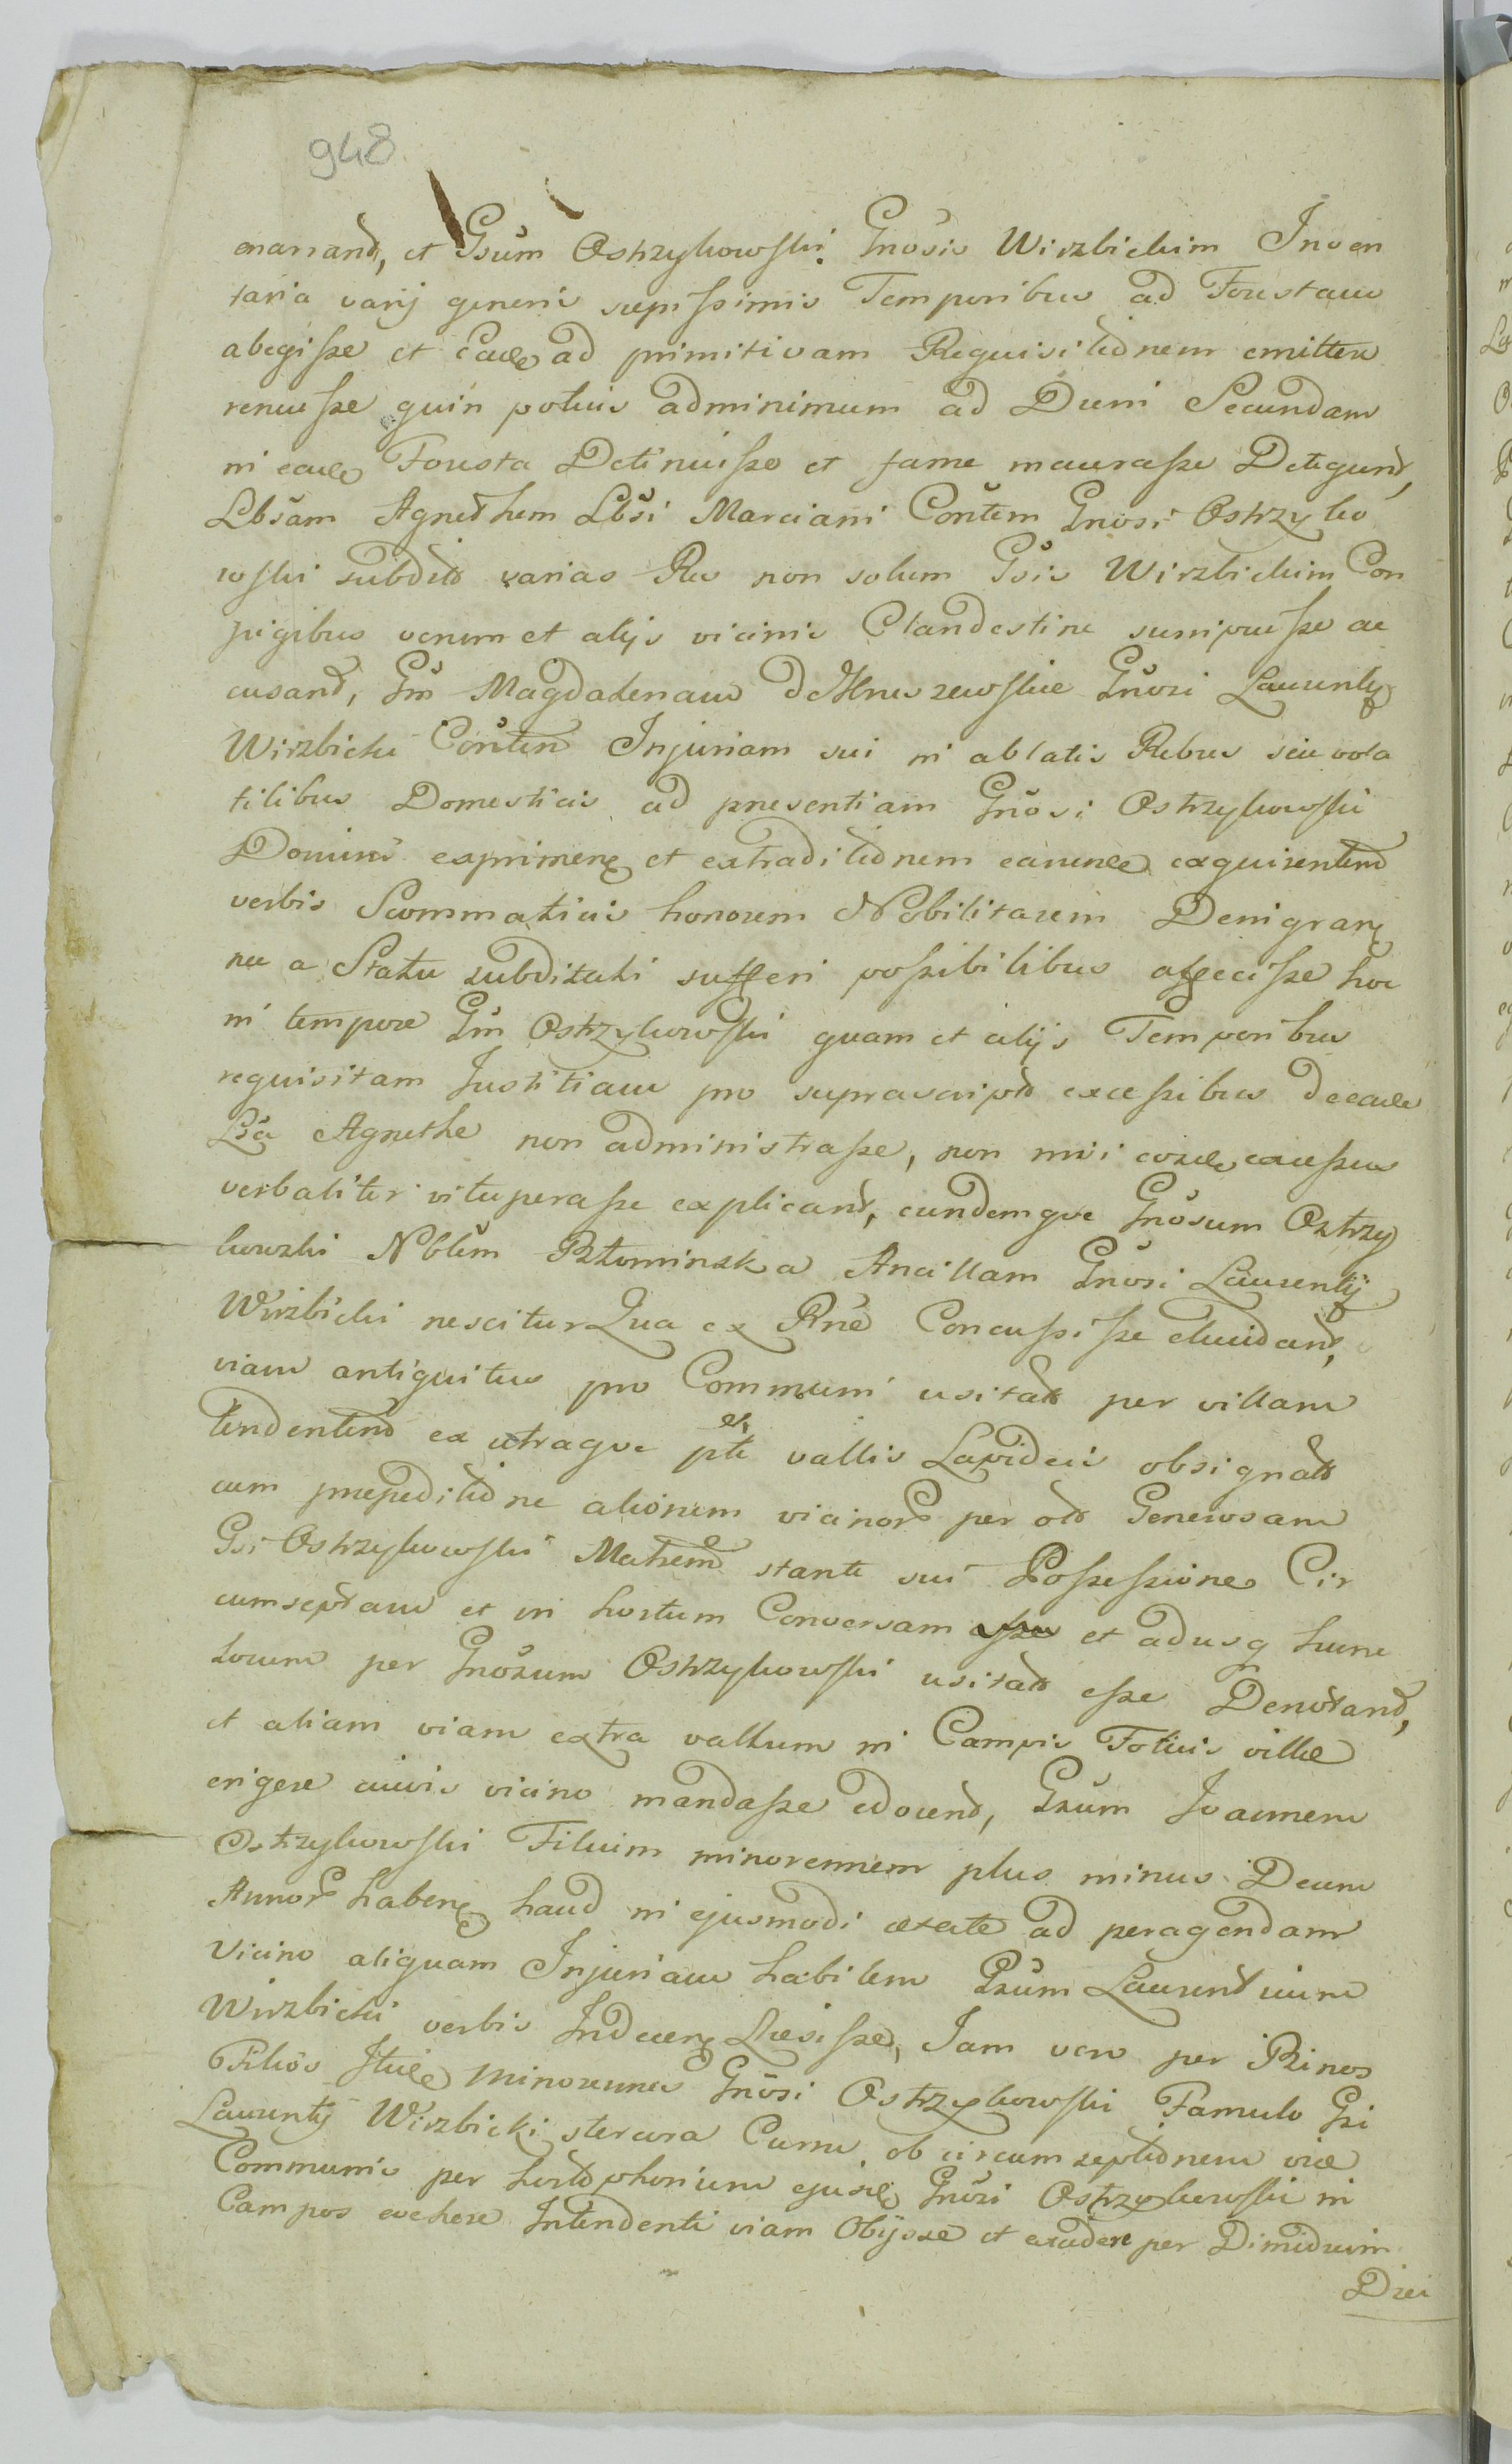 948
enarrand, et Gsum Ostrzykowski Gnosis Wirzbickim Inven
taria varij generis sepissimis Temporibus ad Forestam
abegisse et Eade ad primitivam Requisitionem emittere
renuisse quin potius adminimum ad Diem Secundam
in eade Foresta Detinuisse et fame macerasse Detegend,
Lbsam Agnethem Lbsi Marciani Contem Gnosi Ostrzyko
wski subditd varias Res non solum Gsis Wirzbickim Con
jugibus verum et alijs vicinis Clandestine surripuisse ac
cusand, Gm Magdalenam de Gnosi Laurentij
Wirzbicki Contem Injuriam sui in ablatis Rebus seu vola
tilibus Domesticis ad presentiam Gnosi Ostrzykowski
Domini exprimen et extraditionem earunde exquirentem
verbis Scommaticis honorem Nobilitarem Denigran
nec a Statu subditali sufferi possibilibus affecisse hoc
in tempore Gm Ostrzykowski quam et alijs Temporibus
requisitam Justitiam pro suprascriptd excessibus deeade
Lsa Agnethe non administrasse, non nisi eosde excessus
verbaliter vituperasse explicand, eundemque Gnosum Ostrzy
kowski Nblem Ancillam Gnosi Laurentij
Wirzbicki nescitur Qua ex Rne Concussisse elucidand,
viam antiquitus pro Communi usitatd per villam
tendentem ex utraque pte vallis Lapideis obsignatd
cum prepeditione aliorum vicinor per old Generosam
Gsi Ostrzykowski Matrem stante sui Possessione Cir
cumseptam et in hortum Conversam esse et adusq hunc
horum per Gnosum Ostrzykowski usitatd esse Denotand,
et aliam viam extra vallum in Campis Totius ville
erigere cuivis vicino mandasse edocend, Gsum Joannem
Ostrzykowski Filium minorennem plus minus Decem
Annor haben haud in ejusmodi etate ad peragendam
Vicino aliquam Injuriam habilem Gsum Laurentium
Wirzbicki verbis Indecen Lesisse, Iam vero per Binos
Filios Itide Minorennes Gnosi Ostrzykowski Famulo Gsi
Laurentij Wirzbicki stercora Curru ob circumseptionem vie
Communis per ejusde Gnosi Ostrzykowski in
Campos evehere Intendenti viam Obijsse et per Dimidium
Diei